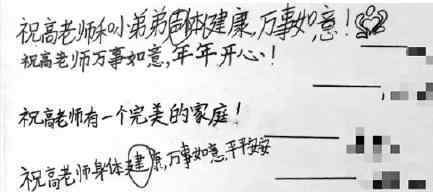 祝高老师和小弟弟身体健康,万事如意!
祝高老师万事如意,年年开心!
祝高老师有一个完美的家庭!
祝高老师身体建康,万事如意,平平安安